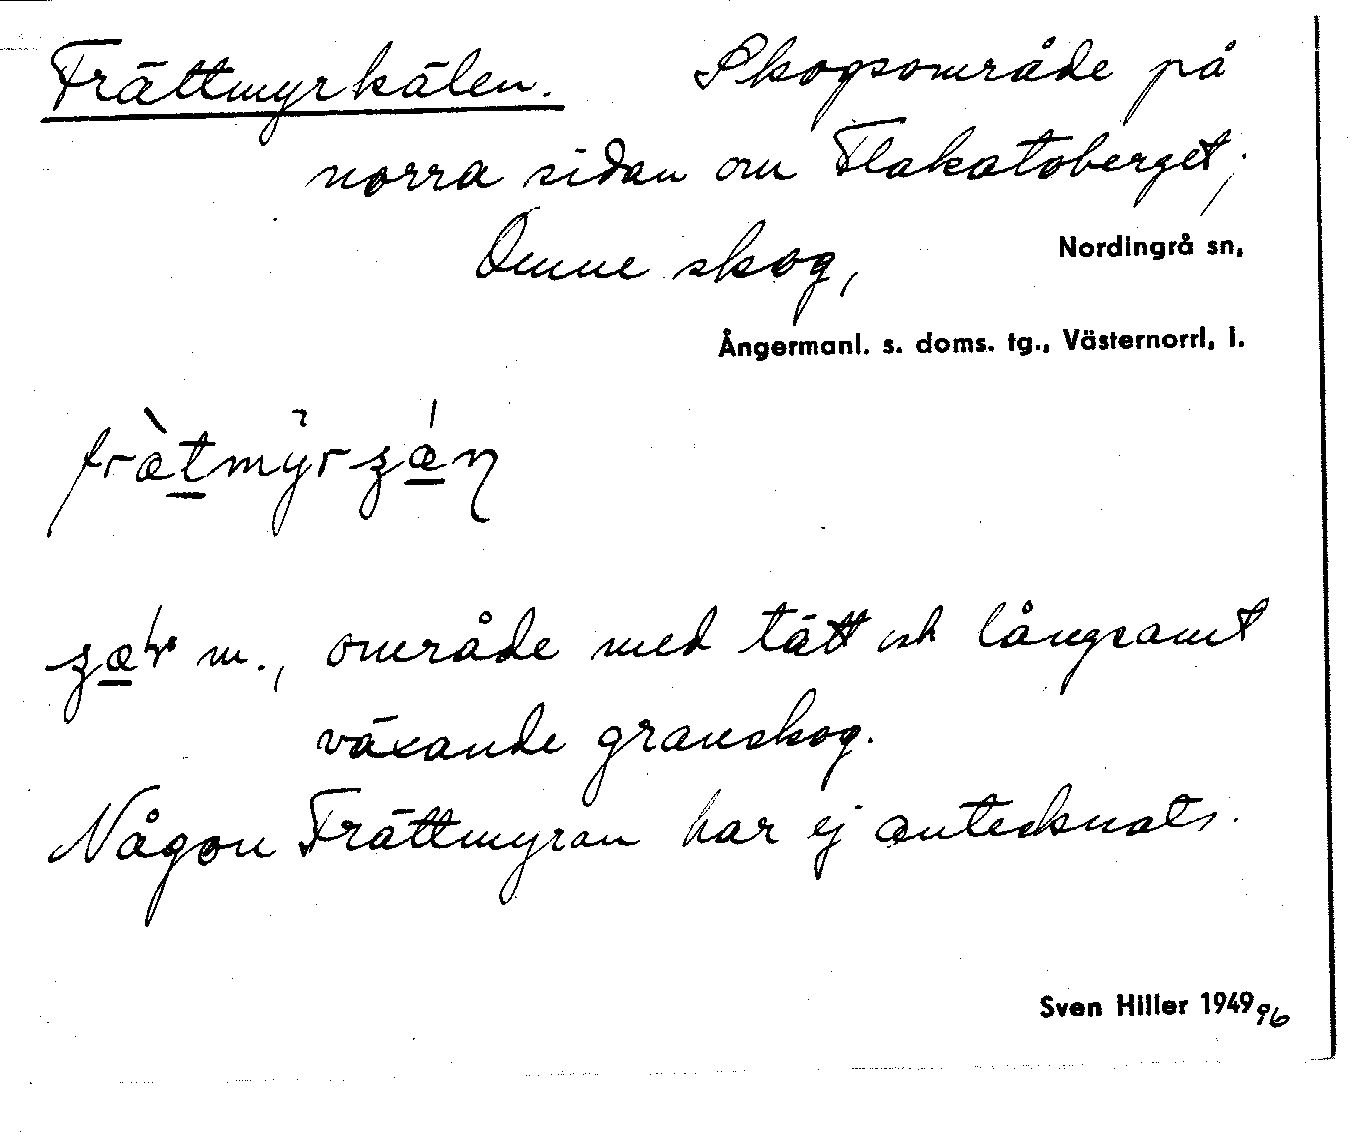 Frättmyrkälen. Skogsområde på
norra sidan om Flakatoberget,
Omne skog, Nordingrå sn,
Ångermanl. s. doms. tg., Västernorrl. l.
m., område med tätt och långsamt
växande granskog.
Någon Frättmyran har ej antecknats.
Sven Hiller 1949 96